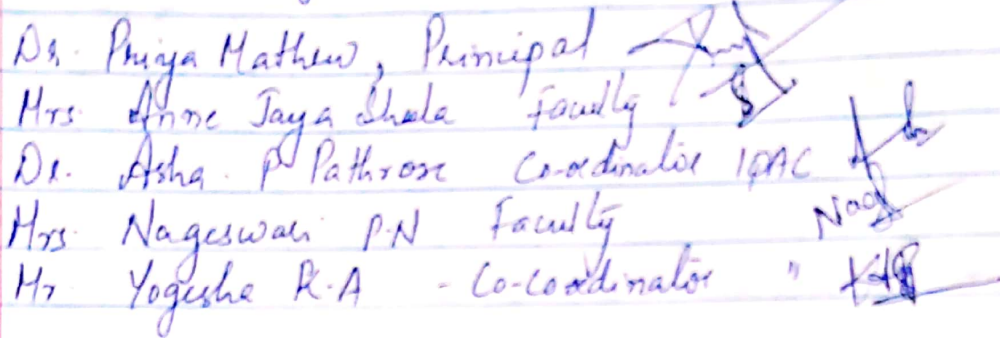 Dr. Priya Mathew, Principal
Mrs. Anne Jaya Sheela Faculty
Dr. Asha. P Pathrose Co-ordinator IQAC
Mrs. Nageswari P.N Faculty Nag
Mr Yogesha K.A - Co-coordinator "